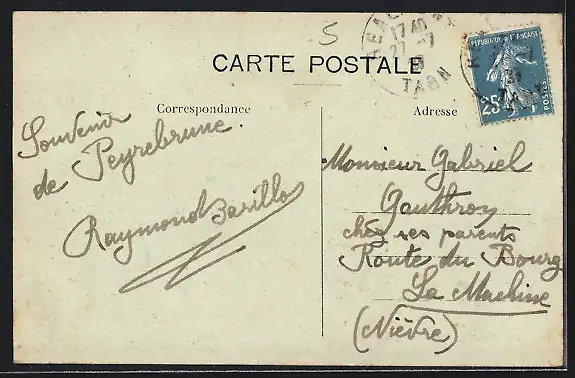 5
17 40
27 -7
TARN
CARTE POSTALE
REPUBLIQUE FRANÇAISE
25
POSTES
Correspondance
Adresse
Souvenir
de Peyrebrune.
Raymond Barillo
Monsieur Gabriel
Gauthron
chez ses parents
Route du Bourg
La Machine
(Nièvre)